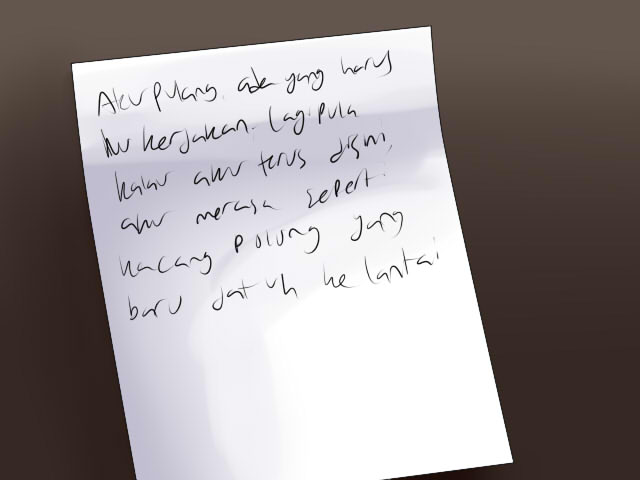 Aku pulang. ada yang harus
ku kerjakan. Lagipula
kalau aku terus disini,
aku merasa seperti
kacang polong yang
baru jatuh ke lantai